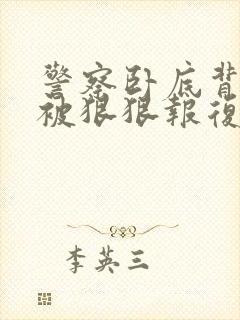 警察卧底背
被狠狠報復
李英三